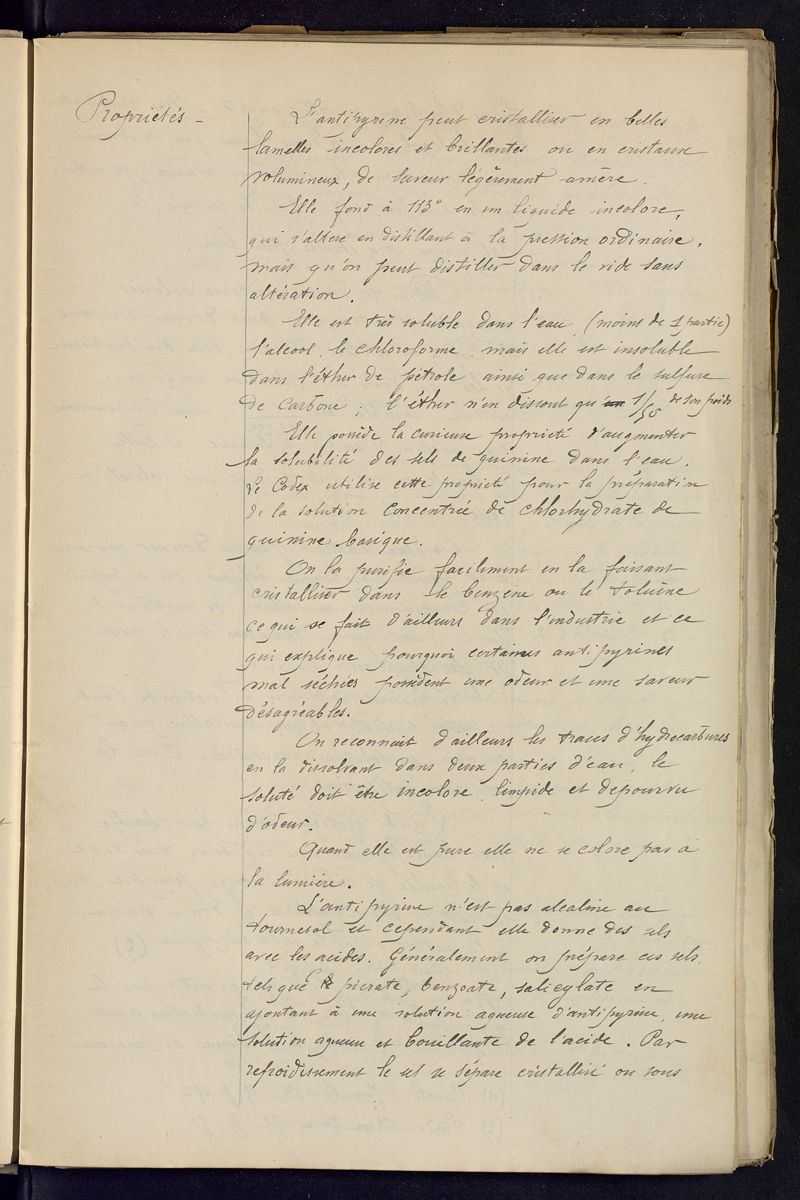 Propriétés –
L'antipyrine peut cristalliser en belles
lamelles incolores et brillantes ou en cristaux
volumineux, de saveur légèrement amère.
Elle fond à 113° en un liquide incolore,
qui s'altère en distillant à la pression ordinaire,
mais qu'on peut distiller dans le vide sans
altération.
Elle est très soluble dans l'eau (moins de 1 partie)
l'alcool, le chloroforme, mais elle est insoluble
dans l'éther de pétrole ainsi que dans le sulfure
de carbone ; l'éther n'en dissout qu' 1/50 de son poids
Elle possède la curieuse propriété d'augmenter
la solubilité des sels de quinine dans l'eau.
Le Codex utilise cette propriété pour la préparation
de la solution concentrée de chlorhydrate de
quinine basique.
On la purifie facilement en la faisant
cristalliser dans le benzène ou le toluène
ce qui se fait d'ailleurs dans l'industrie et ce
qui explique pourquoi certaines antipyrines
mal séchées possèdent une odeur et une saveur
désagréables.
On reconnait d'ailleurs les traces d'hydrocarbures
en la dissolvant dans deux parties d'eau, le
soluté doit être incolore, limpide et dépourvu
d'odeur.
Quand elle est pure elle ne se colore pas à
la lumière.
L'antipyrine n'est pas alcaline au
tournesol et cependant elle donne des sels
avec les acides. Généralement on prépare ces sels
tels que picrate, benzoate, salicylate en
ajoutant à une solution aqueuse d'antipyrine, une
solution aqueuse et bouillante de l'acide. Par
refroidissement le sel se sépare cristallisé ou sous